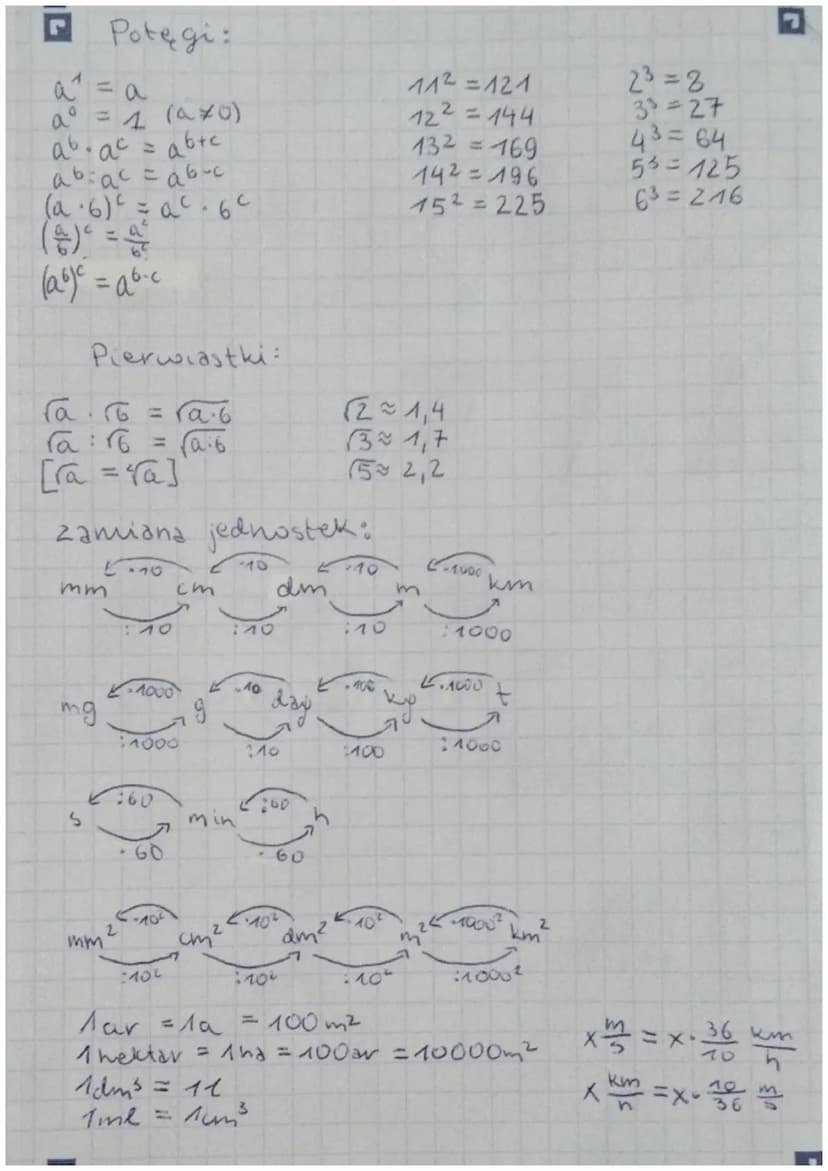 Potęgi:
a¹ = a
a⁰ = 1 (a≠0)
aᵇ · aᶜ = aᵇ⁺ᶜ
aᵇ : aᶜ = aᵇ⁻ᶜ
(a · b)ᶜ = aᶜ · bᶜ
(a/b)ᶜ = aᶜ/bᶜ
(aᵇ)ᶜ = aᵇ·ᶜ
11² = 121
12² = 144
13² = 169
14² = 196
15² = 225
2³ = 8
3³ = 27
4³ = 64
5³ = 125
6³ = 216
Pierwiastki:
√a · √b = √a·b
√a : √b = √a:b
√2 ≈ 1,4
√3 ≈ 1,7
√5 ≈ 2,2
zamiana jednostek:
·10 ·10 ·10 ·1000
mm cm dm m km
:10 :10 :10 :1000
·1000 ·10 ·100 ·1000
mg g dag kg t
:1000 :10 :100 :1000
:60 :60
s min h
·60 ·60
·10² ·10² ·10² ·1000²
mm² cm² dm² m² km²
:10² :10² :10² :1000²
1ar = 1a = 100m²
1hektar = 1ha = 100ar = 10000m²
1dm³ = 1l
1ml = 1cm³
x m/s = x · 36/10 km/h
x km/h = x · 10/36 m/s